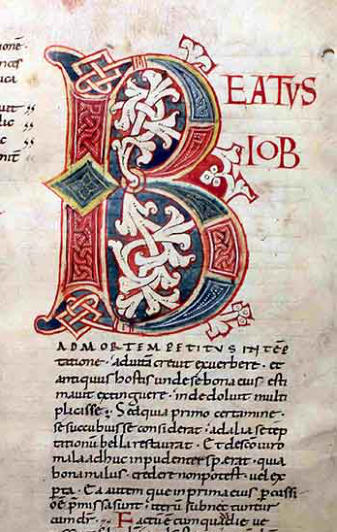 BEATVS
IOB
ADMORTEM PETITVS INTEP
tatione · aduita creuit exuerbere · et
antiquus hostis unde se bona eius esti
mauit extinguere · inde doluit multi
plicasse ; Sed quia primo certamine ·
se succubuisse considerat · ad alia se tep
tationū bella restaurat · Et desco uiro
mala adhuc inpudenter sperat · quia
bona malus · credere non potest · uel ex
pta · Ea autem que in prima eius pcussi
one pmissa sunt · iterū subnectuntur